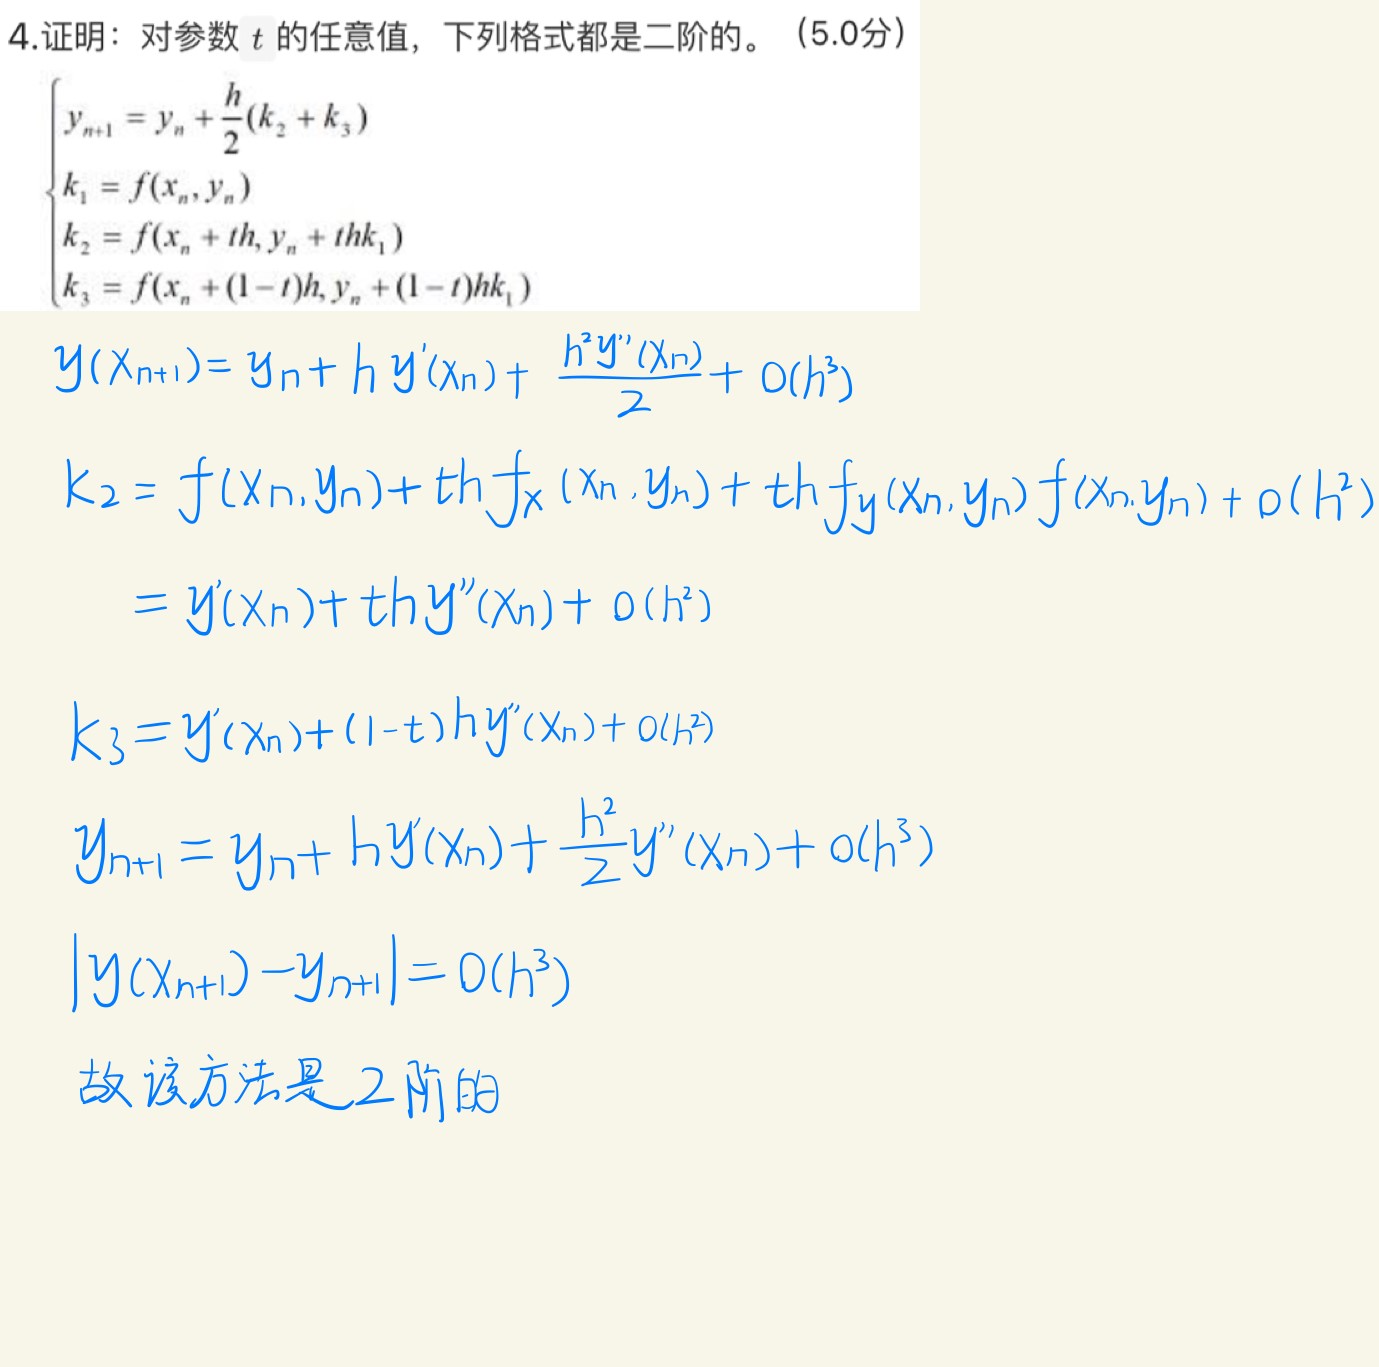 4.证明：对参数 t 的任意值，下列格式都是二阶的。（5.0分）
y_{n+1} = y_n + \frac{h}{2}(k_2 + k_3)
k_1 = f(x_n, y_n)
k_2 = f(x_n + th, y_n + thk_1)
k_3 = f(x_n + (1-t)h, y_n + (1-t)hk_1)
y(x_{n+1}) = y_n + h y'(x_n) + \frac{h^2 y''(x_n)}{2} + O(h^3)
k_2 = f(x_n, y_n) + th f_x(x_n, y_n) + th f_y(x_n, y_n) f(x_n, y_n) + O(h^2)
= y'(x_n) + th y''(x_n) + O(h^2)
k_3 = y'(x_n) + (1-t)h y''(x_n) + O(h^2)
y_{n+1} = y_n + h y'(x_n) + \frac{h^2}{2} y''(x_n) + O(h^3)
|y(x_{n+1}) - y_{n+1}| = O(h^3)
故该方法是2阶的